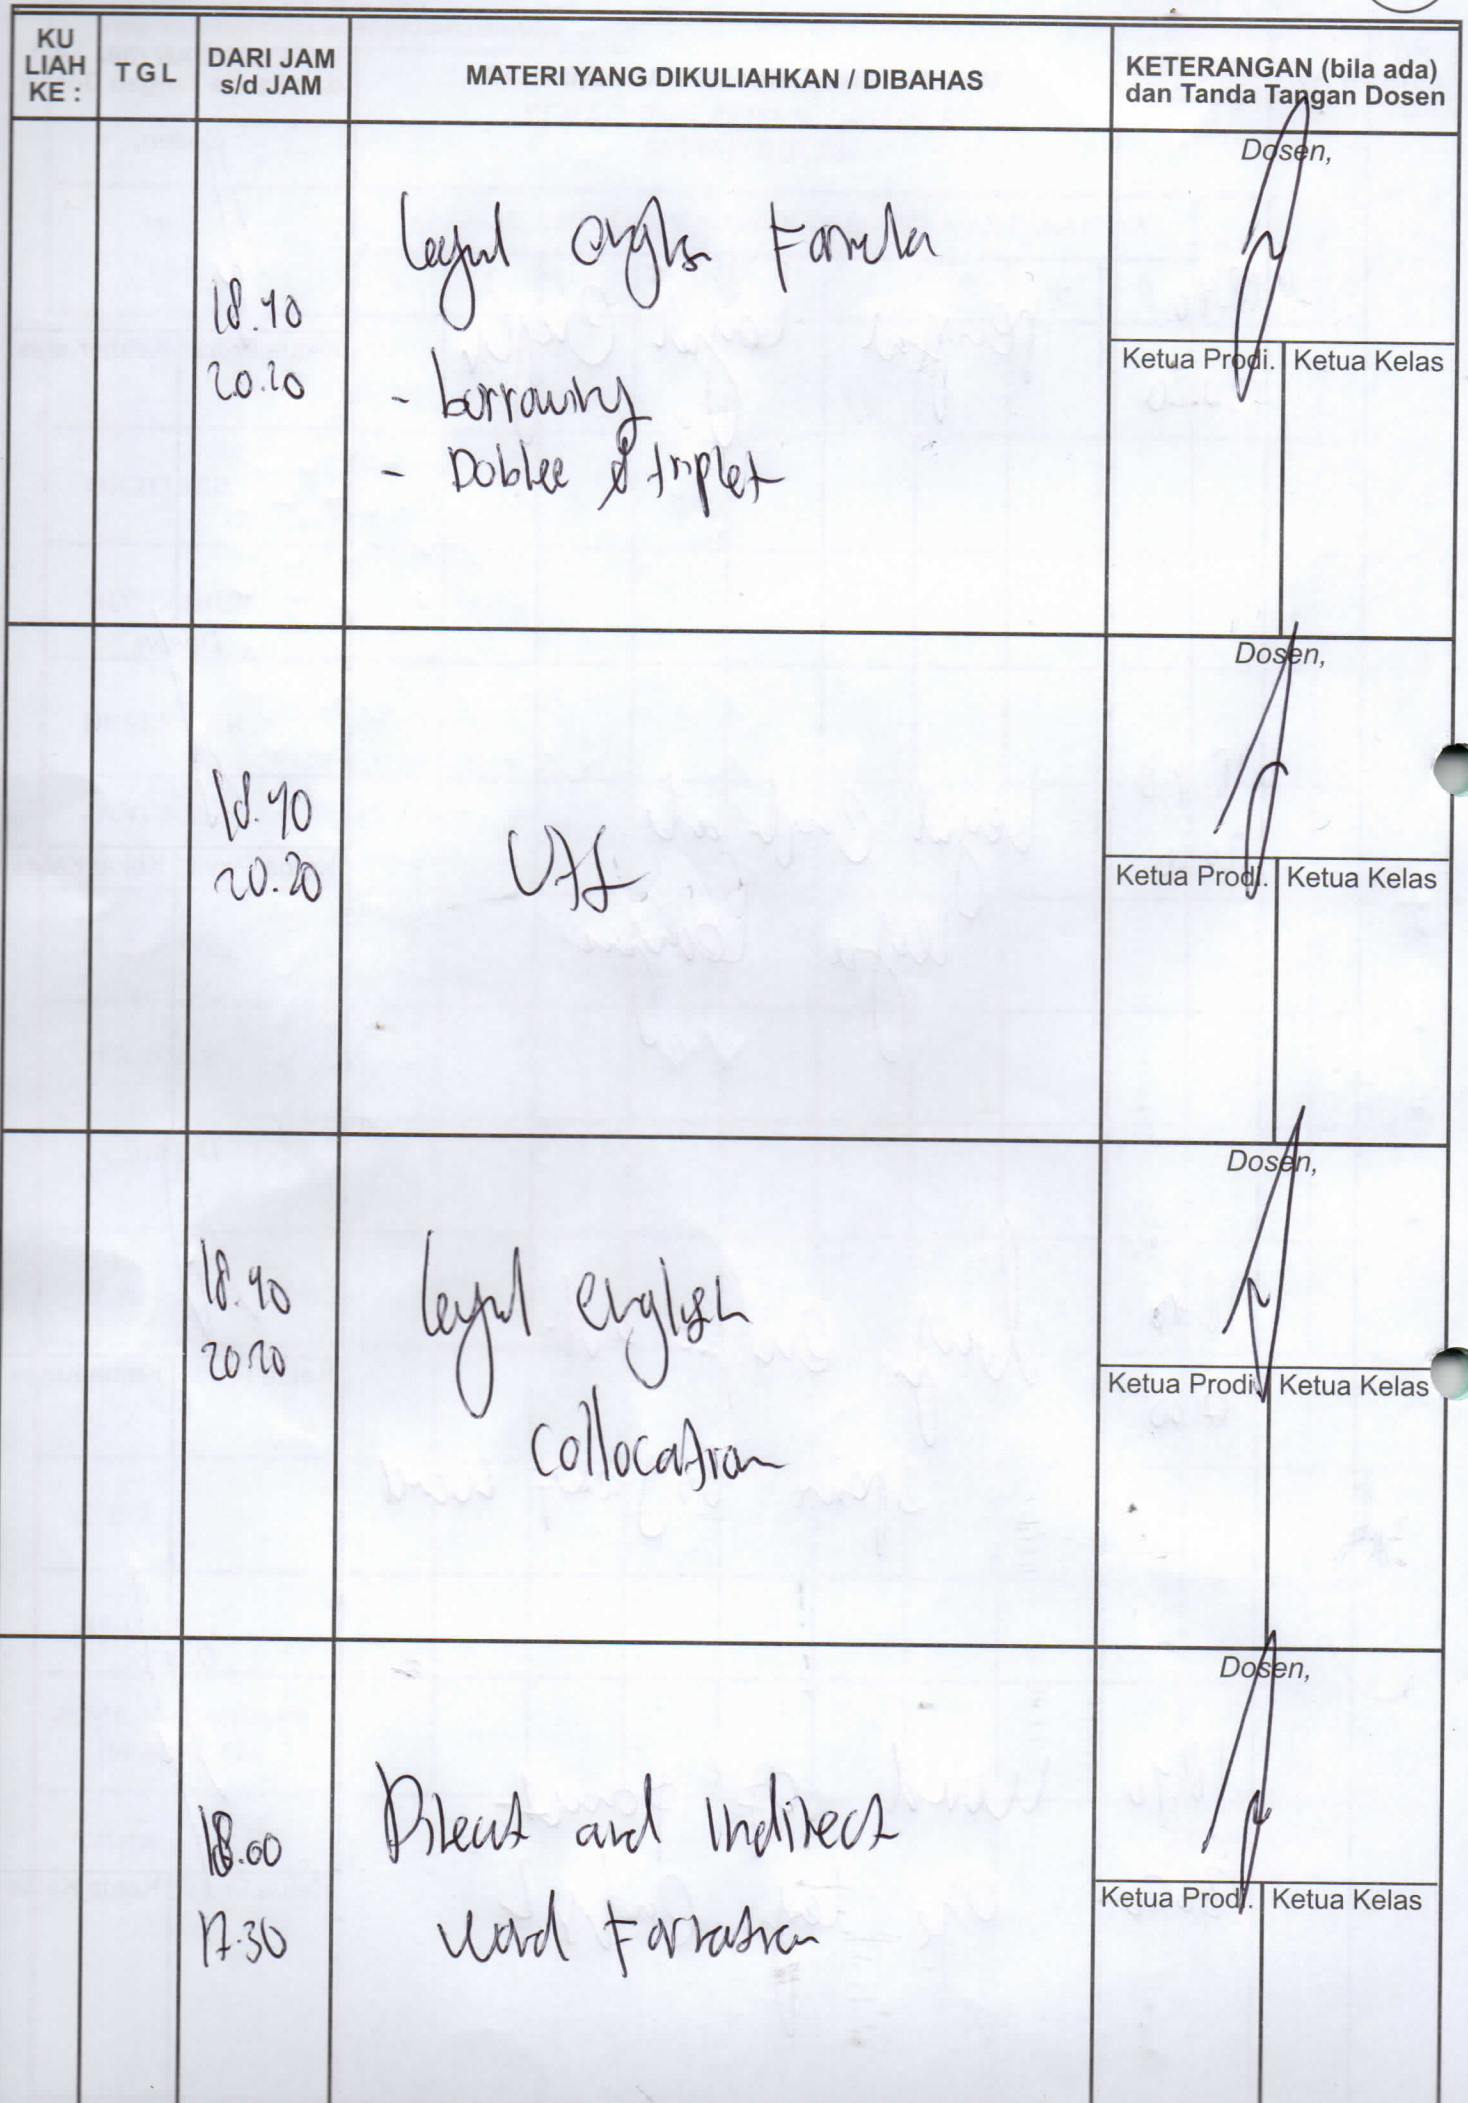 KU
LIAH
KE :
TGL
DARI JAM
s/d JAM
MATERI YANG DIKULIAHKAN / DIBAHAS
KETERANGAN (bila ada)
dan Tanda Tangan Dosen
18.40
20.20
Legal
- borrowing
- Doblee & triplet
Dosen,
Ketua Prodi. Ketua Kelas
18.40
20.20
Dosen,
Ketua Prodi. Ketua Kelas
18.40
20.20
legal english
collocation
Dosen,
Ketua Prodi. Ketua Kelas
17.30
Direct and Indirect
Word Formation
Dosen,
Ketua Prodi. Ketua Kelas